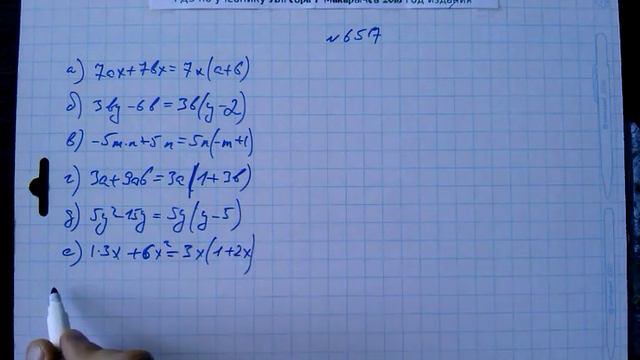 ГДЗ по учебнику Алгебра 7 Макарычев 2015 год издания
№657
а) 7ax+7bx=7x(a+b)
б) 3by-6b=3b(y-2)
в) -5m·n+5n=5n(-m+1)
г) 3a+9ab=3a(1+3b)
д) 5y²-15y=5y(y-5)
е) 1·3x+6x²=3x(1+2x)